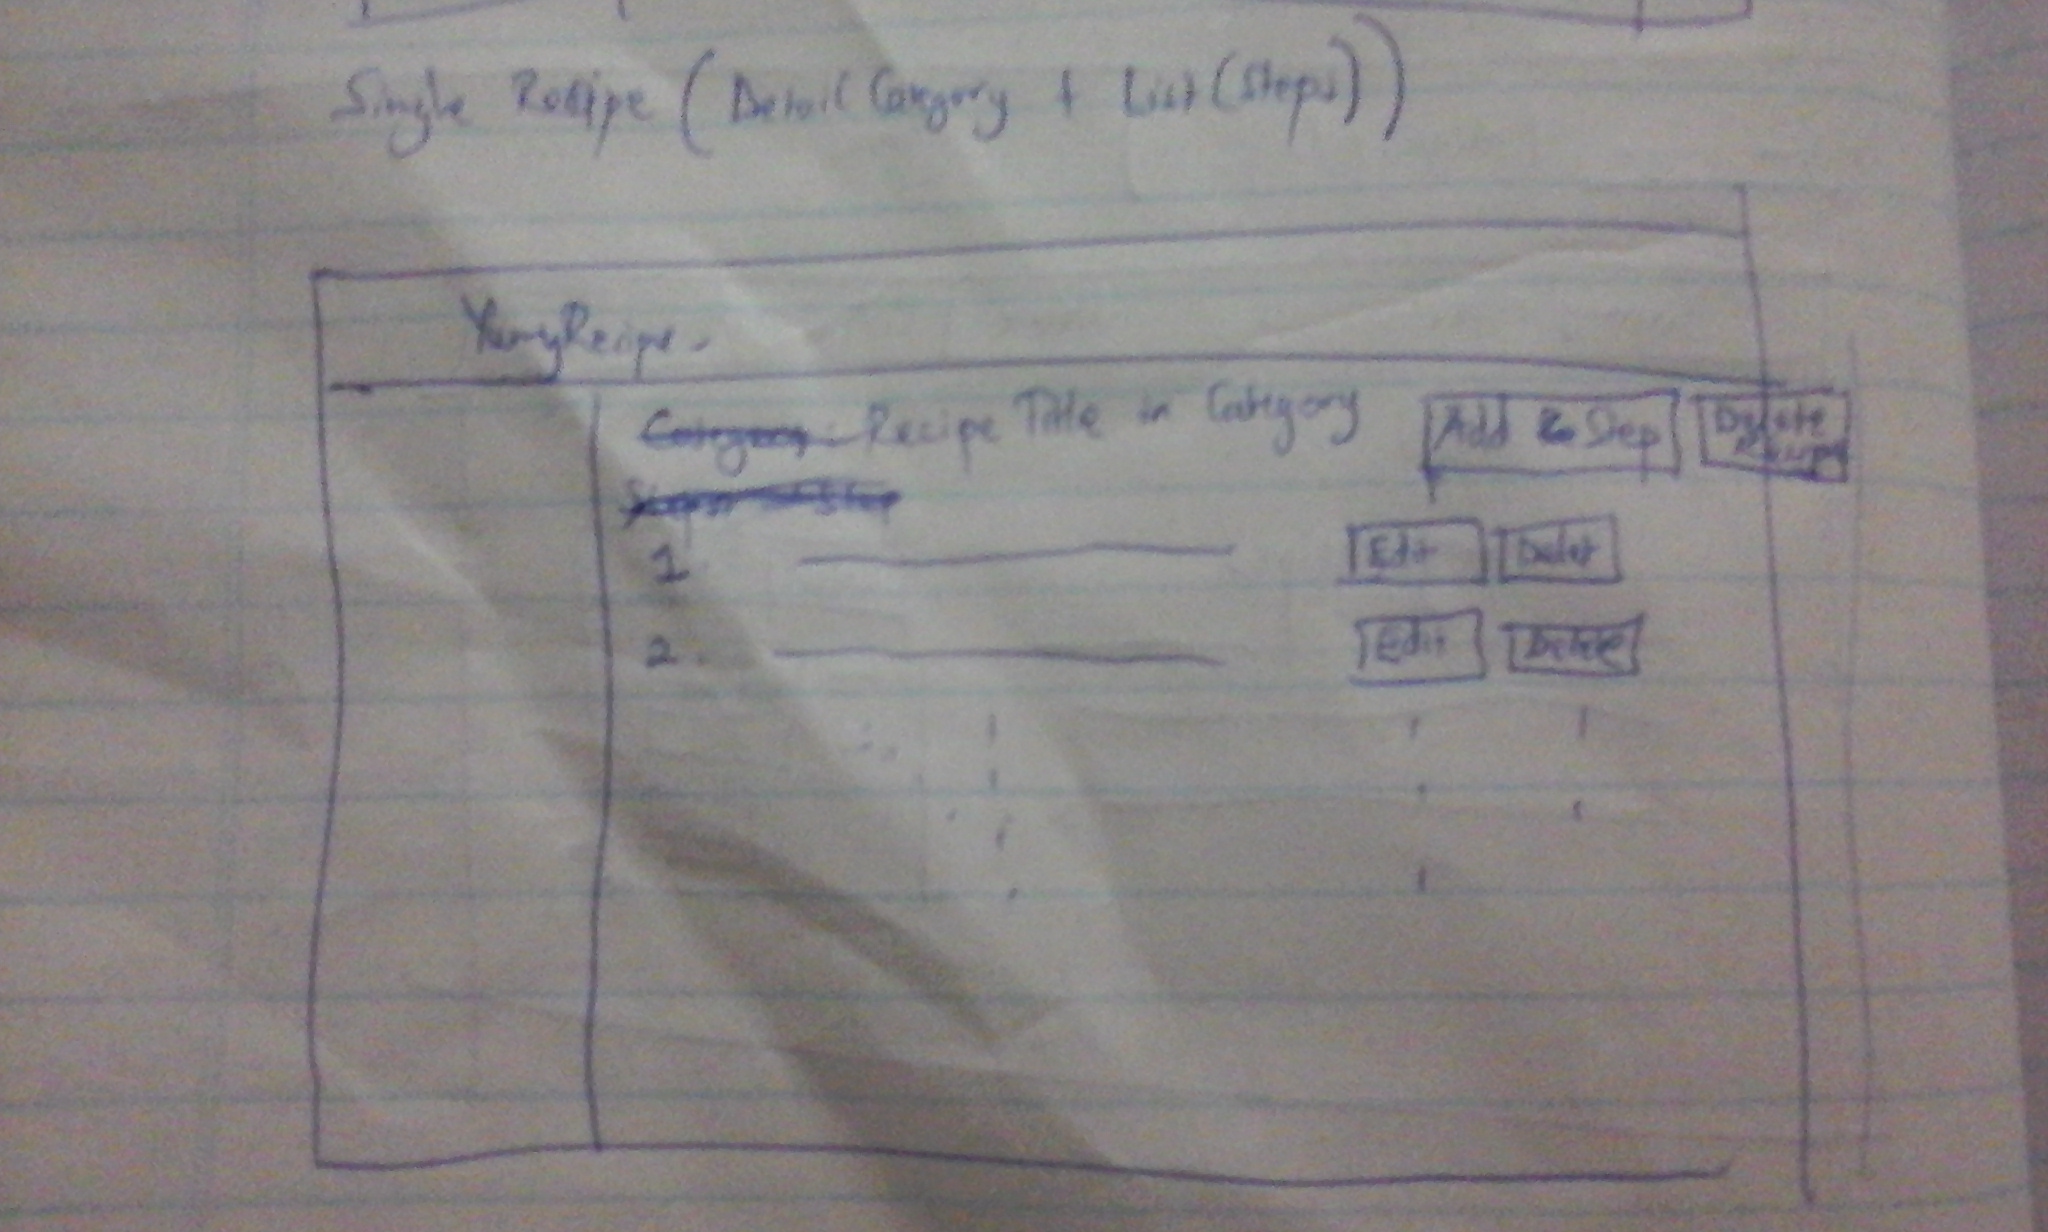 Single Recipe (Detail Category + List (Steps))
YumyRecipe.
Category: Recipe Title in Category Add Step Delete Recipe
1 Edit Delet
2. Edit Delete